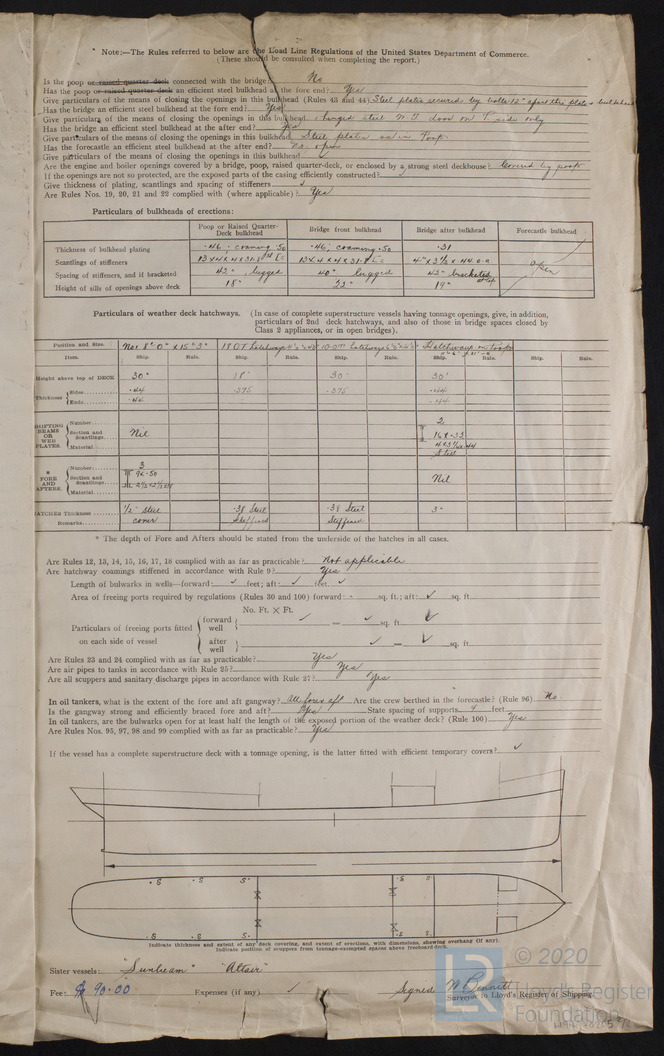 * Note:—The Rules referred to below are the Load Line Regulations of the United States Department of Commerce.
(These should be consulted when completing the report.)
Is the poop or raised quarter deck connected with the bridge? No
Has the poop or raised quarter deck an efficient steel bulkhead at the fore end? Yes
Give particulars of the means of closing the openings in this bulkhead (Rules 43 and 44) Steel plates secured by bolts 12" apart thro plate & bulkhead
Has the bridge an efficient steel bulkhead at the fore end? Yes
Give particulars of the means of closing the openings in this bulkhead hinged steel W.T door on P side only
Has the bridge an efficient steel bulkhead at the after end? Yes
Give particulars of the means of closing the openings in this bulkhead Steel plates as in Poop.
Has the forecastle an efficient steel bulkhead at the after end? No open
Give particulars of the means of closing the openings in this bulkhead ✓
Are the engine and boiler openings covered by a bridge, poop, raised quarter-deck, or enclosed by a strong steel deckhouse? Covered by poop
If the openings are not so protected, are the exposed parts of the casing efficiently constructed? ✓
Give thickness of plating, scantlings and spacing of stiffeners ✓
Are Rules Nos. 19, 20, 21 and 22 complied with (where applicable)? Yes
Particulars of bulkheads of erections:
Poop or Raised Quarter-Deck bulkhead Bridge front bulkhead Bridge after bulkhead Forecastle bulkhead
Thickness of bulkhead plating .46, coaming .50 .46, coaming .50 .31
Scantlings of stiffeners 13x4x4x31.8 13x4x4x31.8 4"x3½x.44 o.a open
Spacing of stiffeners, and if bracketed 42" lugged 40" lugged 42" bracketed at top
Height of sills of openings above deck 18" 23" 19"
Particulars of weather deck hatchways. (In case of complete superstructure vessels having tonnage openings, give, in addition,
particulars of 2nd deck hatchways, and also of those in bridge spaces closed by
Class 2 appliances, or in open bridges).
Position and Size. No1 8'-0" x 15'3" 18 OT hatchways 10-OT hatchways Hatchways on Poop
Item. Ship. Rule. Ship. Rule. Ship. Rule. Ship. Rule. Ship. Rule.
Height above top of DECK 30" 18" 30" 30"
Thickness Sides .44 .375 .375 .44
Ends .44 .44
SHIFTING BEAMS OR WEB PLATES. Number 2
Section and Scantlings Nil 16x.33
4x3½x.44
Material Steel
* FORE AND AFTERS. Number 3
Section and Scantlings 9x.50 Nil
Material
HATCHES Thickness ½" steel .38 Steel .38 Steel 3"
Remarks cover Stiffened Stiffened
* The depth of Fore and Afters should be stated from the underside of the hatches in all cases.
Are Rules 12, 13, 14, 15, 16, 17, 18 complied with as far as practicable? Not applicable
Are hatchway coamings stiffened in accordance with Rule 9? Yes
Length of bulwarks in wells—forward: ✓ feet; aft: ✓ feet. ✓
Area of freeing ports required by regulations (Rules 30 and 100) forward: - sq. ft.; aft: ✓ sq. ft.
No. Ft. × Ft.
Particulars of freeing ports fitted on each side of vessel
forward well ✓ = ✓ sq. ft. ✓
after well ✓ = ✓ sq. ft.
Are Rules 23 and 24 complied with as far as practicable? Yes
Are air pipes to tanks in accordance with Rule 25? Yes
Are all scuppers and sanitary discharge pipes in accordance with Rule 27? Yes
In oil tankers, what is the extent of the fore and aft gangway? All fore & aft Are the crew berthed in the forecastle? (Rule 96) No
Is the gangway strong and efficiently braced fore and aft? Yes State spacing of supports feet
In oil tankers, are the bulwarks open for at least half the length of the exposed portion of the weather deck? (Rule 100) Yes
Are Rules Nos. 95, 97, 98 and 99 complied with as far as practicable? Yes
If the vessel has a complete superstructure deck with a tonnage opening, is the latter fitted with efficient temporary covers? ✓
.S .S S. .S S.
.S .S S. .S S.
Indicate thickness and extent of any deck covering, and extent of erections, with dimensions, showing overhang (if any).
Indicate position of scuppers from tonnage-exempted spaces above freeboard deck.
Sister vessels: "Sunbeam" "Altair"
Fee: $ 90.00 Expenses (if any) ✓ Signed W Bennett
Surveyor to Lloyd's Register of Shipping.
© 2020
LR
Lloyd's Register
Foundation